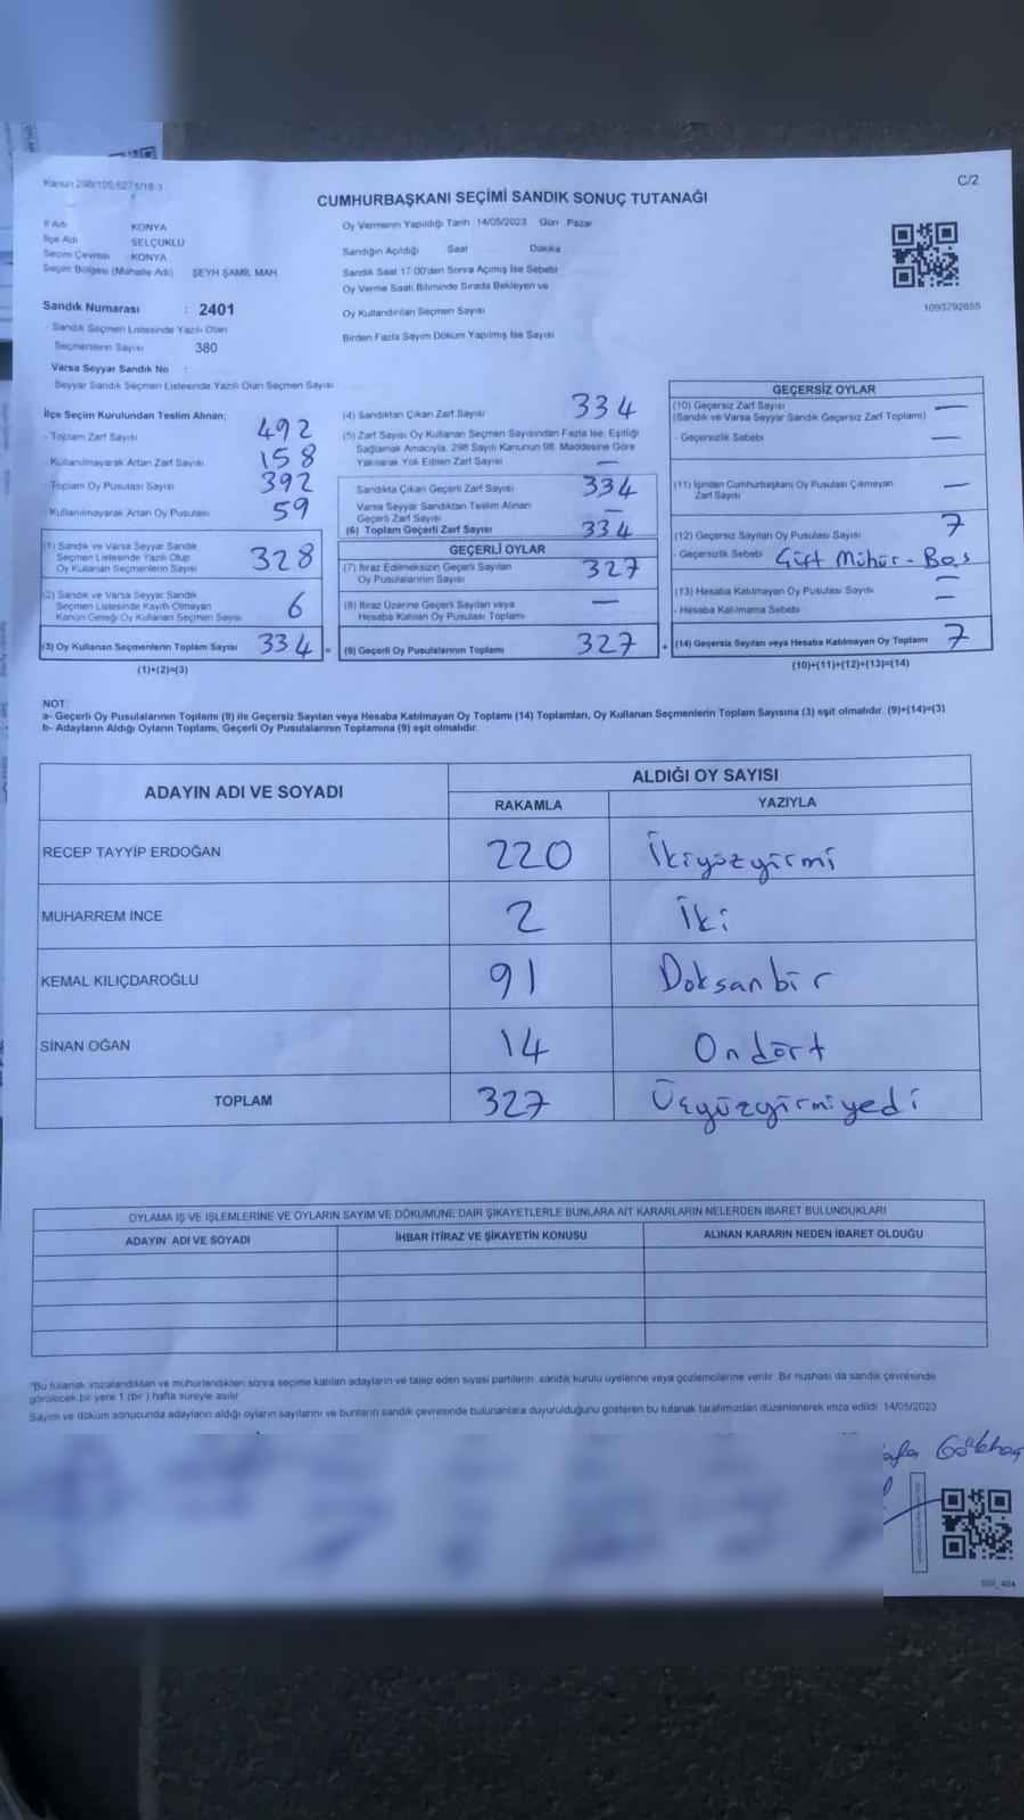 Kanun 298/105,6271/18-3
C/2
CUMHURBAŞKANI SEÇİMİ SANDIK SONUÇ TUTANAĞI
İl Adı KONYA
İlçe Adı SELÇUKLU
Seçim Çevresi KONYA
Seçim Bölgesi (Mahalle Adı) ŞEYH ŞAMİL MAH
Sandık Numarası : 2401
- Sandık Seçmen Listesinde Yazılı Olan
Seçmenlerin Sayısı 380
Varsa Seyyar Sandık No :
- Seyyar Sandık Seçmen Listesinde Yazılı Olan Seçmen Sayısı
Oy Vermenin Yapıldığı Tarih 14/05/2023 Gün Pazar
Sandığın Açıldığı Saat Dakika
Sandık Saat 17.00'den Sonra Açılmış İse Sebebi
Oy Verme Saati Bitiminde Sırada Bekleyen ve
Oy Kullandırılan Seçmen Sayısı
Birden Fazla Sayım Döküm Yapılmış İse Sayısı
1093792655
İlçe Seçim Kurulundan Teslim Alınan;
- Toplam Zarf Sayısı 492
- Kullanılmayarak Artan Zarf Sayısı 158
- Toplam Oy Pusulası Sayısı 392
- Kullanılmayarak Artan Oy Pusulası 59
(1) Sandık ve Varsa Seyyar Sandık
Seçmen Listesinde Yazılı Olup
Oy Kullanan Seçmenlerin Sayısı 328
(2) Sandık ve Varsa Seyyar Sandık
Seçmen Listesinde Kayıtlı Olmayan
Kanun Gereği Oy Kullanan Seçmen Sayısı 6
(3) Oy Kullanan Seçmenlerin Toplam Sayısı 334 =
(1)+(2)=(3)
(4) Sandıktan Çıkan Zarf Sayısı 334
(5) Zarf Sayısı Oy Kullanan Seçmen Sayısından Fazla İse, Eşitliği
Sağlamak Amacıyla, 298 Sayılı Kanunun 98. Maddesine Göre
Yakılarak Yok Edilen Zarf Sayısı —
Sandıkta Çıkan Geçerli Zarf Sayısı 334
Varsa Seyyar Sandıktan Teslim Alınan
Geçerli Zarf Sayısı —
(6) Toplam Geçerli Zarf Sayısı 334
GEÇERLİ OYLAR
(7) İtiraz Edilmeksizin Geçerli Sayılan
Oy Pusulalarının Sayısı 327
(8) İtiraz Üzerine Geçerli Sayılan veya
Hesaba Katılan Oy Pusulası Toplamı —
(9) Geçerli Oy Pusulalarının Toplamı 327 +
GEÇERSİZ OYLAR
(10) Geçersiz Zarf Sayısı —
(Sandık ve Varsa Seyyar Sandık Geçersiz Zarf Toplamı)
- Geçersizlik Sebebi —
(11) İçinden Cumhurbaşkanı Oy Pusulası Çıkmayan
Zarf Sayısı —
(12) Geçersiz Sayılan Oy Pusulası Sayısı 7
- Geçersizlik Sebebi Çift Mühür - Boş
(13) Hesaba Katılmayan Oy Pusulası Sayısı —
- Hesaba Katılmama Sebebi —
(14) Geçersiz Sayılan veya Hesaba Katılmayan Oy Toplamı 7
(10)+(11)+(12)+(13)=(14)
NOT:
a- Geçerli Oy Pusulalarının Toplamı (9) ile Geçersiz Sayılan veya Hesaba Katılmayan Oy Toplamı (14) Toplamları, Oy Kullanan Seçmenlerin Toplam Sayısına (3) eşit olmalıdır. (9)+(14)=(3)
b- Adayların Aldığı Oyların Toplamı, Geçerli Oy Pusulalarının Toplamına (9) eşit olmalıdır.
ADAYIN ADI VE SOYADI ALDIĞI OY SAYISI
RAKAMLA YAZIYLA
RECEP TAYYİP ERDOĞAN 220 İkiyüzyirmi
MUHARREM İNCE 2 İki
KEMAL KILIÇDAROĞLU 91 Doksanbir
SİNAN OĞAN 14 Ondört
TOPLAM 327 Üçyüzyirmiyedi
OYLAMA İŞ VE İŞLEMLERİNE VE OYLARIN SAYIM VE DÖKÜMÜNE DAİR ŞİKAYETLERLE BUNLARA AİT KARARLARIN NELERDEN İBARET BULUNDUKLARI
ADAYIN ADI VE SOYADI İHBAR İTİRAZ VE ŞİKAYETİN KONUSU ALINAN KARARIN NEDEN İBARET OLDUĞU
"Bu tutanak imzalandıktan ve mühürlendikten sonra seçime katılan adayların ve talep eden siyasi partilerin, sandık kurulu üyelerine veya gözlemcilerine verilir. Bir nüshası da sandık çevresinde
görülecek bir yere 1 (bir) hafta süreyle asılır.
Sayım ve döküm sonucunda adayların aldığı oyların sayılarını ve bunların sandık çevresinde bulunanlara duyurulduğunu gösteren bu tutanak tarafımızdan düzenlenerek imza edildi. 14/05/2023